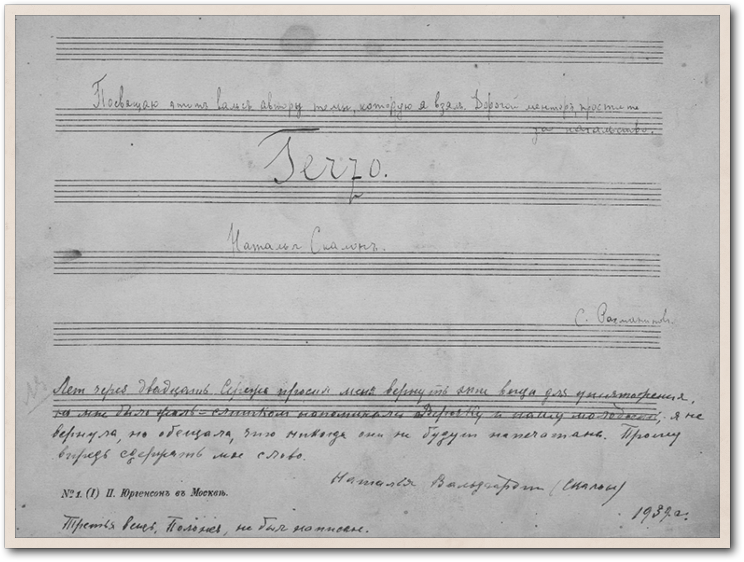 Посвящаю этотъ вальсъ автору темы, которую я взял. Дорогой менторъ простите
за нахальство.
Terzo.
Наталья Скалонъ.
С. Рахманинов.
Лет через двадцать Сережа просил меня вернуть эти вещи для уничтожения,
но мне было жаль — слишком напоминали Верочку и нашу молодость, я не
вернула, но обещала, что никогда они не будут напечатаны. Прошу
впредь сдержать мое слово.
Наталья Вальдгардт (Скалон)
№ 1. (I) П. Юргенсонъ въ Москвѣ.
1939 г.
Третья вещь, Полонез, не был написан.